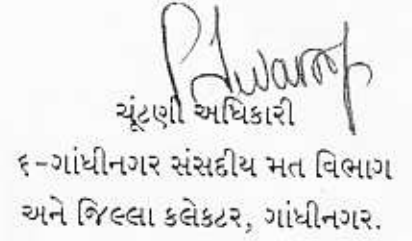 ચૂંટણી અધિકારી
૬-ગાંધીનગર સંસદીય મત વિભાગ
અને જિલ્લા કલેકટર, ગાંધીનગર.